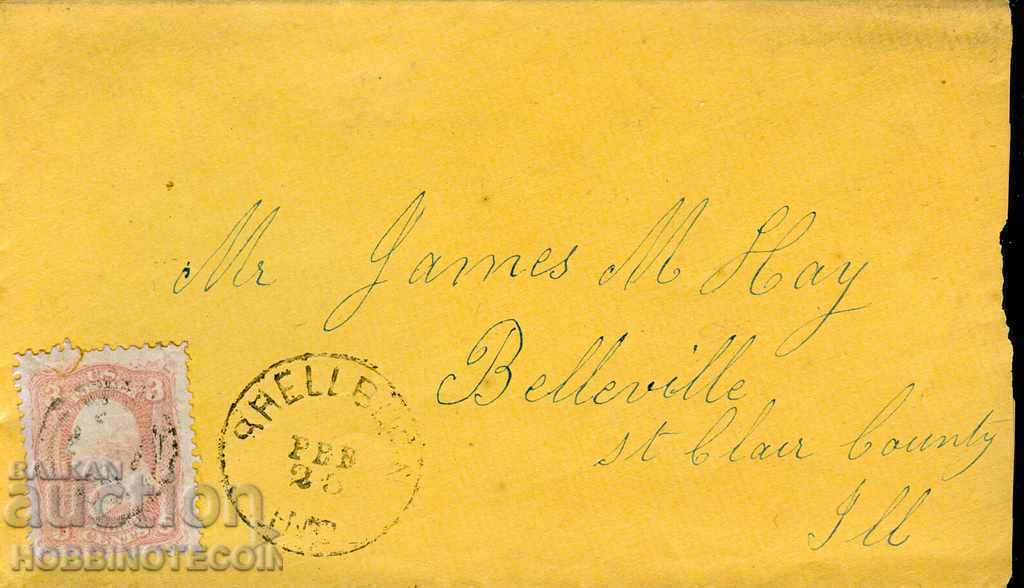 Mr James M Hay
Belleville
St Clair County
Ill
FEB
BALKAN
auction
HOBBINOTECOIN